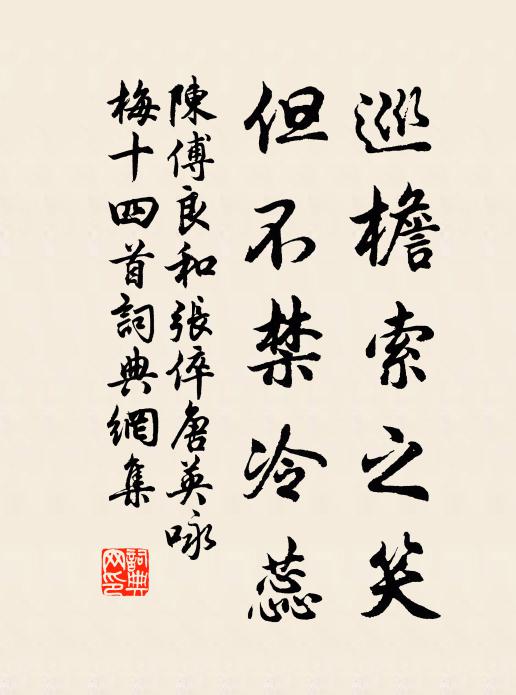 巡檐索之笑
但不禁冷蕊
陳傅良和張倅唐英咏
梅十四首詞典網集
詞典网印